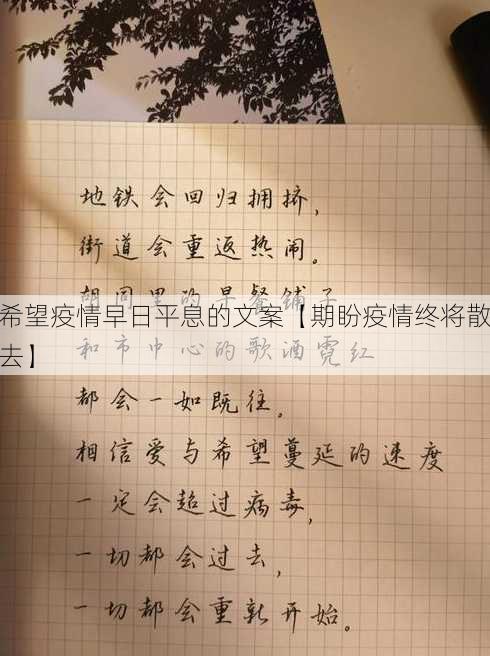 地铁会回归拥挤，
街道会重返热闹。
胡同里的早餐铺子
希望疫情早日平息的文案【期盼疫情终将散
去】
和市中心的歌酒霓红
都会一如既往。
相信爱与希望蔓延的速度
一定会超过病毒，
一切都会过去，
一切都会重新开始。